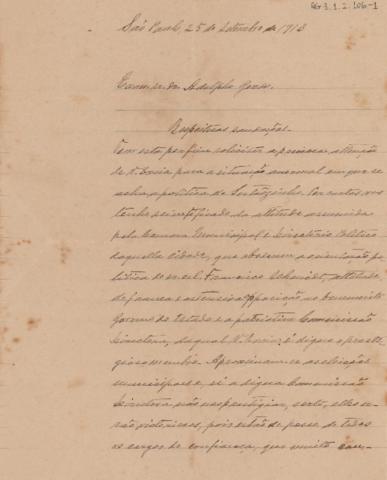 AG 3.1.2.106-1
São Paulo, 25 de Setembro de 1913
Exmo. sr. dr. Adolpho Gordo.
Respeitosas saudações.
Tem esta por fim solicitar a preciosa attenção
de V. Excia para a situação anormal em que se
acha a politica de Sertãozinho. Por cartas, vos
tenho scientificado da attitude assumida
pela Camara Municipal e Directorio Politico
daquella cidade, que obedecem a orientação po-
litica do sr. cel. Francisco Schmidt, attitude
de franca e ostensiva opposição ao benemerito
Governo do Estado e a patriotica Commissão
Directora, da qual V. Excia. é digno e presti-
gioso membro. Aproximam-se as eleições
municipaes e, si a digna Commissão
Directora não nos prestigiar, serão elles
victoriosos, pois estão de posse de todos
os cargos de confiança, que muito